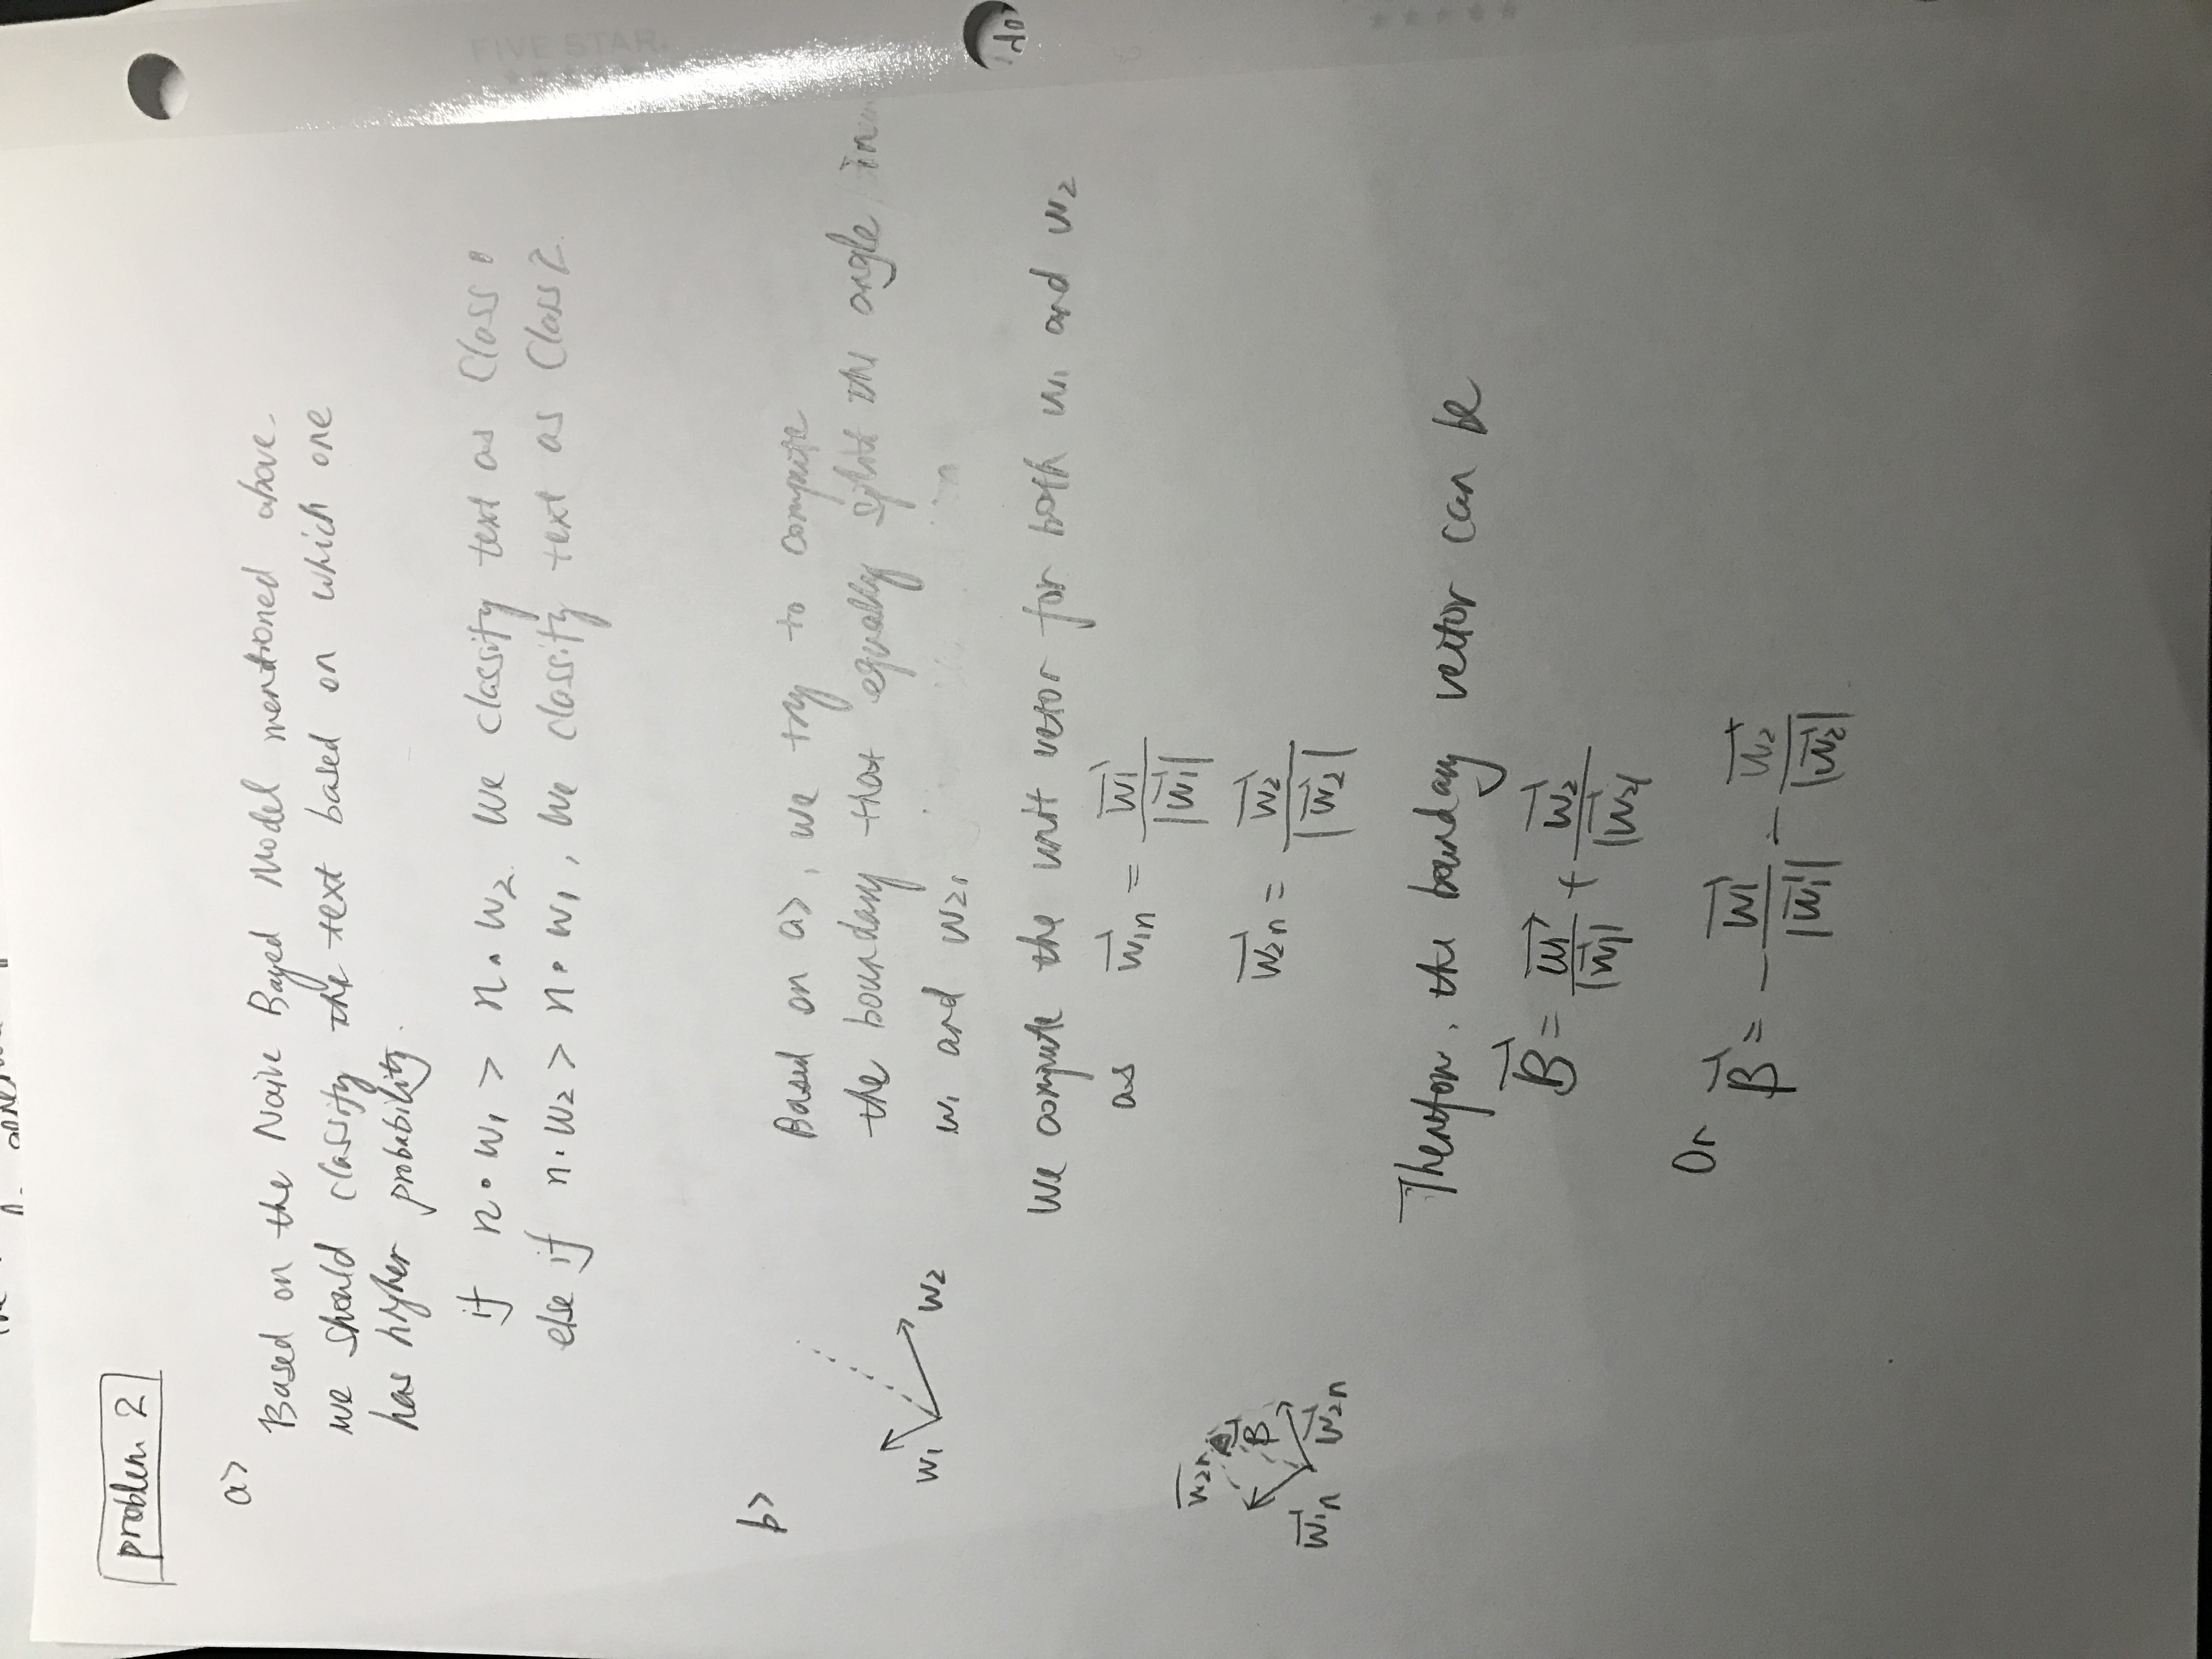 problem 2
a>
Based on the Naive Bayed Model mentioned above.
we should classify the text based on which one
has higher probability.
if n • w1 > n • w2. We classify text as Class 1
else if n • w2 > n • w1, We classify text as Class 2.
b>
Based on a>, we try to compute
the boundary that equally split the angle
w1 and w2,
w1 w2
We compute the unit vetor for both w1 and w2
as w1n = w1 / |w1|
w2n = w2 / |w2|
w2n
B
w1n w2n
Therefore, the boundary vector can be
B = w1 / |w1| + w2 / |w2|
Or
B = - w1 / |w1| - w2 / |w2|
FIVE STAR.